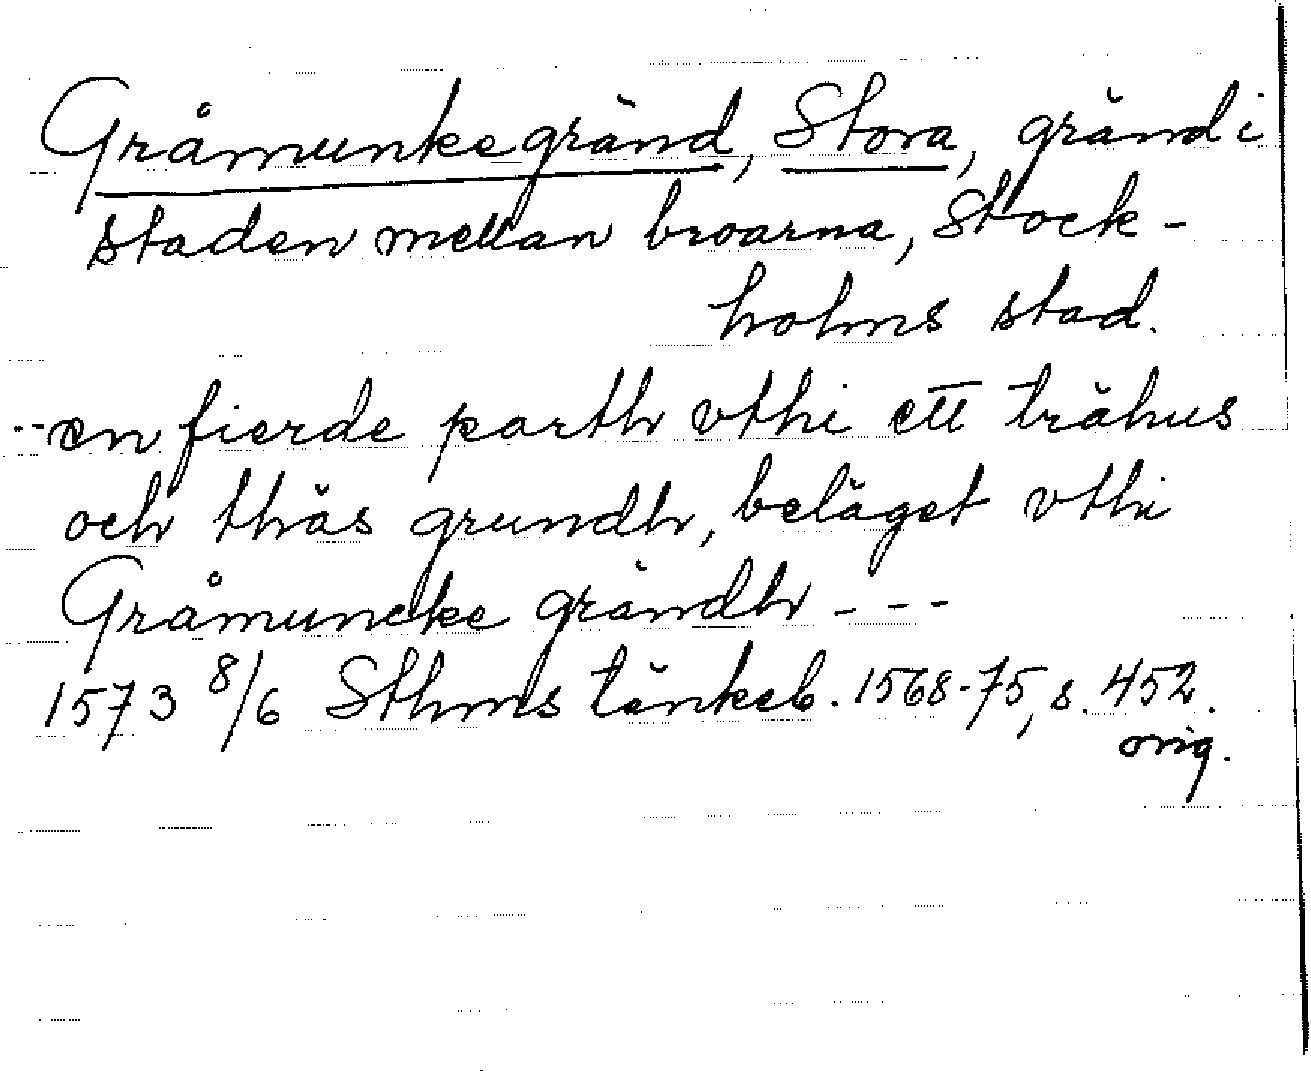 Gråmunkegränd, Stora, gränd i
staden mellan broarna, Stock-
holms stad.
--en fierde parth vthi ett trähus
och thäs grundh, beläget vthi
Gråmuncke grändh ---
1573 8/6 Sthms tänkeb. 1568-75, s. 452.
orig.